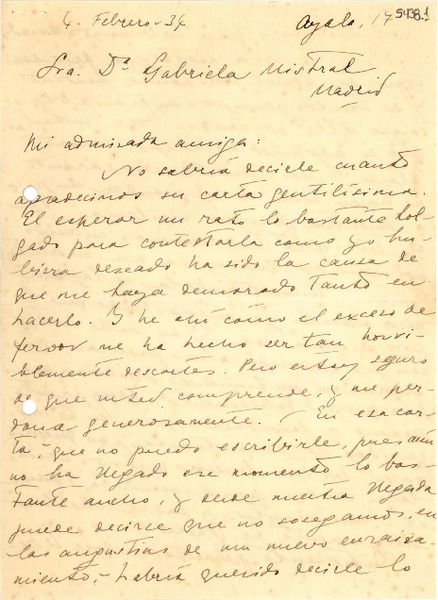 4. Febrero-34 Ayala, 17 5438.1
Sra. Dª Gabriela Mistral
Madrid
Mi admirada amiga:
No sabría decirle cuanto
agradecimos su carta gentilísima.
El esperar un rato lo bastante hol-
gado para contestarla como yo hu-
biera deseado ha sido la causa de
que me haya demorado tanto en
hacerlo. Y he ahí cómo el exceso de
fervor me ha hecho ser tan horri-
blemente descortés. Pero estoy seguro
de que usted comprende, y me per-
dona generosamente. En esa car-
ta, que no puedo escribirle, pues aún
no ha llegado ese momento lo bas-
tante ancho, y desde nuestra llegada
puede decirse que no sosegamos, en
las angustias de un nuevo enraiza-
miento, - habría querido decirle lo